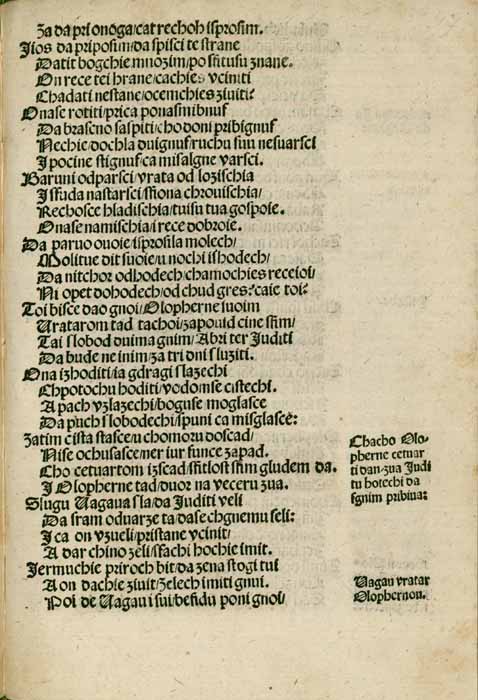 Za da pri onoga/cat rechoh isprosim.
Jios da priposim/da spisci te strane
Datit bogchie mnozim/po sfitusu znane.
On rece tei hrane/cachies vciniti
Chadati nestane/ocemchies ziuiti?
Onase rotiti/prica ponasmibnuf
Da brasceno saspiti/cho doni pribignuf
Nechie/dochla duignuf/ruchu suu nesuarsci
I pocine stignuf/ca misalgne varsci.
Baruni odparsci/vrata od lozischia
I sfuda nastarsci/sfiona chrouischia/
Rechosce hladischia/tuisu tua gospoie.
Onase namischia/i rece dobroie.
Da paruo ouoie/isprosila molech/
Molitue dit suoie/u nochi ishodech/
Da nitchor odhodech/chamochies receioi/
Ni opet dohodech/od chud gres?caie toi?
Toi bisce dao gnoi/Olopherne suoim
Uratarom tad tachoi/zapouid cine sfim/
Tai slobod duima gnim/Abri ter Juditi
Da bude ne inim/za tri dni sluziti.
Ona izhoditi/ia gdragi slazechi
Chpotochu hoditi/vodomse cistechi.
A pach vzlazechi/boguse moglasce
Da puch slobodechi/spuni ca misglasce:
Zatim cista stasce/u chomoru doscad/
Nise ochusasce/ner iur sunce zapad.
Cho cetuartom izscad/sfitlost sfim gludem da.
I Olopherne tad/duor na veceru zua.
Slugu Uagaua sla/da Juditi veli
Da sram oduarze ta/dase chgnemu seli:
I ca on vzueli/pristane vcinit/
A dar chino zeli/sfachi hochie imit.
Jermuchie priroch bit/da zena stogi tui
A on dachie ziuit/zelech imiti gnui.
Poi de Uagau i sui/besidu poni gnoi/
Chacho Olo-
pherne cetuar
ti dan zua Judi
tu botechi da
sgnim pribiua:
Uagau vratar
Olophernou.